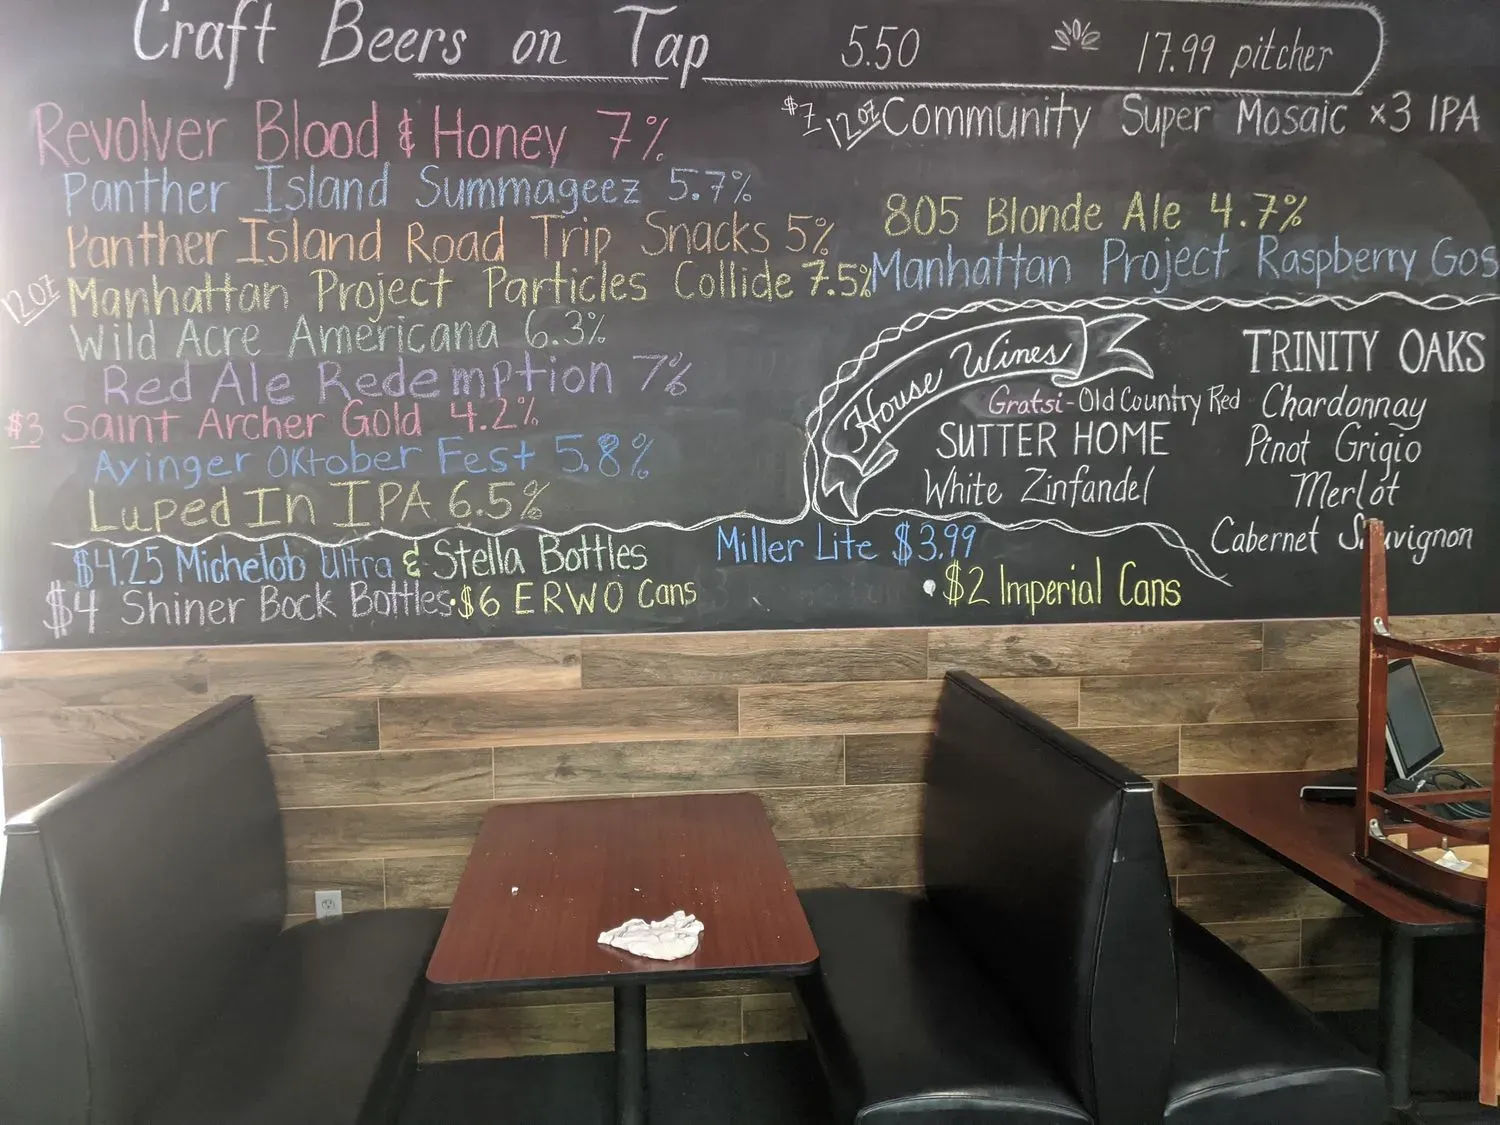 Craft Beers on Tap 5.50 17.99 pitcher
Revolver Blood & Honey 7%
Panther Island Summageez 5.7%
Panther Island Road Trip Snacks 5%
12oz Manhattan Project Particles Collide 7.5%
Wild Acre Americana 6.3%
Red Ale Redemption 7%
$3 Saint Archer Gold 4.2%
Ayinger Oktober Fest 5.8%
Luped In IPA 6.5%
$7 12oz Community Super Mosaic ×3 IPA
805 Blonde Ale 4.7%
Manhattan Project Raspberry Gos
House Wines
Gratsi-Old Country Red
SUTTER HOME
White Zinfandel
TRINITY OAKS
Chardonnay
Pinot Grigio
Merlot
Cabernet Sauvignon
$4.25 Michelob Ultra & Stella Bottles
$4 Shiner Bock Bottles • $6 ERWO Cans
Miller Lite $3.99
• $2 Imperial Cans